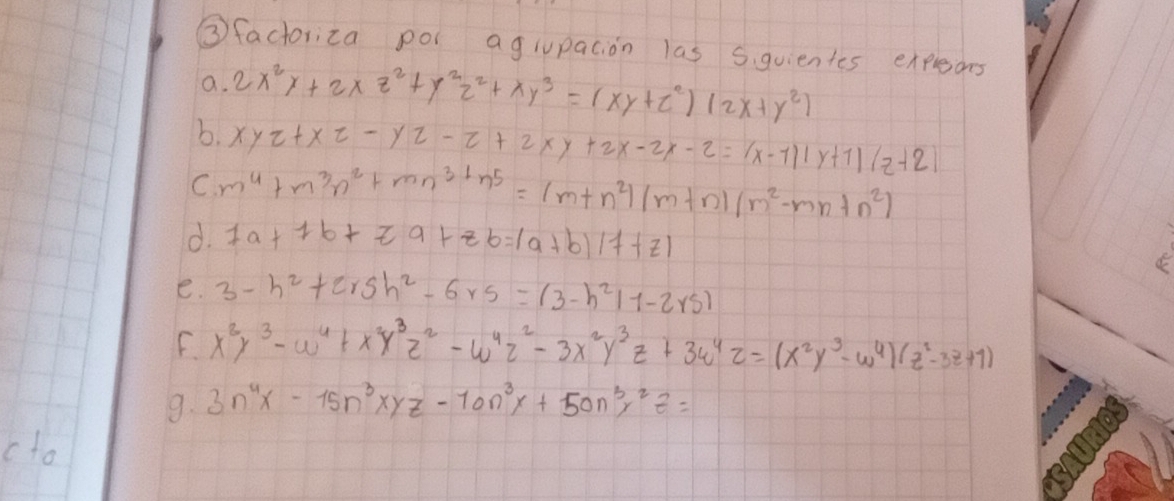 ③ factoriza por agrupación las siguientes expresiors
a. 2x²y + 2xz² + y²z² + xy³ = (xy+z²)(2x+y²)
b. xyz + xz - yz - z + 2xy + 2x - 2x - 2 = (x-1)(y+1)(z+2)
C. m⁴ + m³n² + mn³ + n⁵ = (m+n²)(m+n)(m²-mn+n²)
d. 1a + 1b + za + zb = (a+b)(1+z)
e. 3 - h² + 2rsh² - 6rs = (3-h²)(1-2rs)
F. x²y³ - w⁴ + x²y³z² - w⁴z² - 3x²y³z + 3w⁴z = (x²y³-w⁴)(z²-3z+1)
g. 3n⁴x - 15n³xyz - 10n³y + 50n³y²z =
cto
SAURIOS